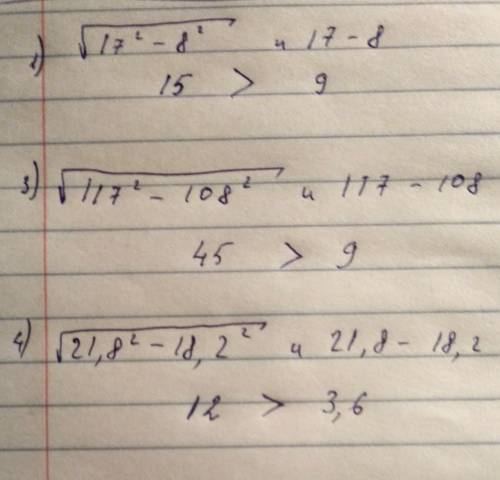 1) √(17² - 8²) и 17 - 8
15 > 9
3) √(117² - 108²) и 117 - 108
45 > 9
4) √(21,8² - 18,2²) и 21,8 - 18,2
12 > 3,6